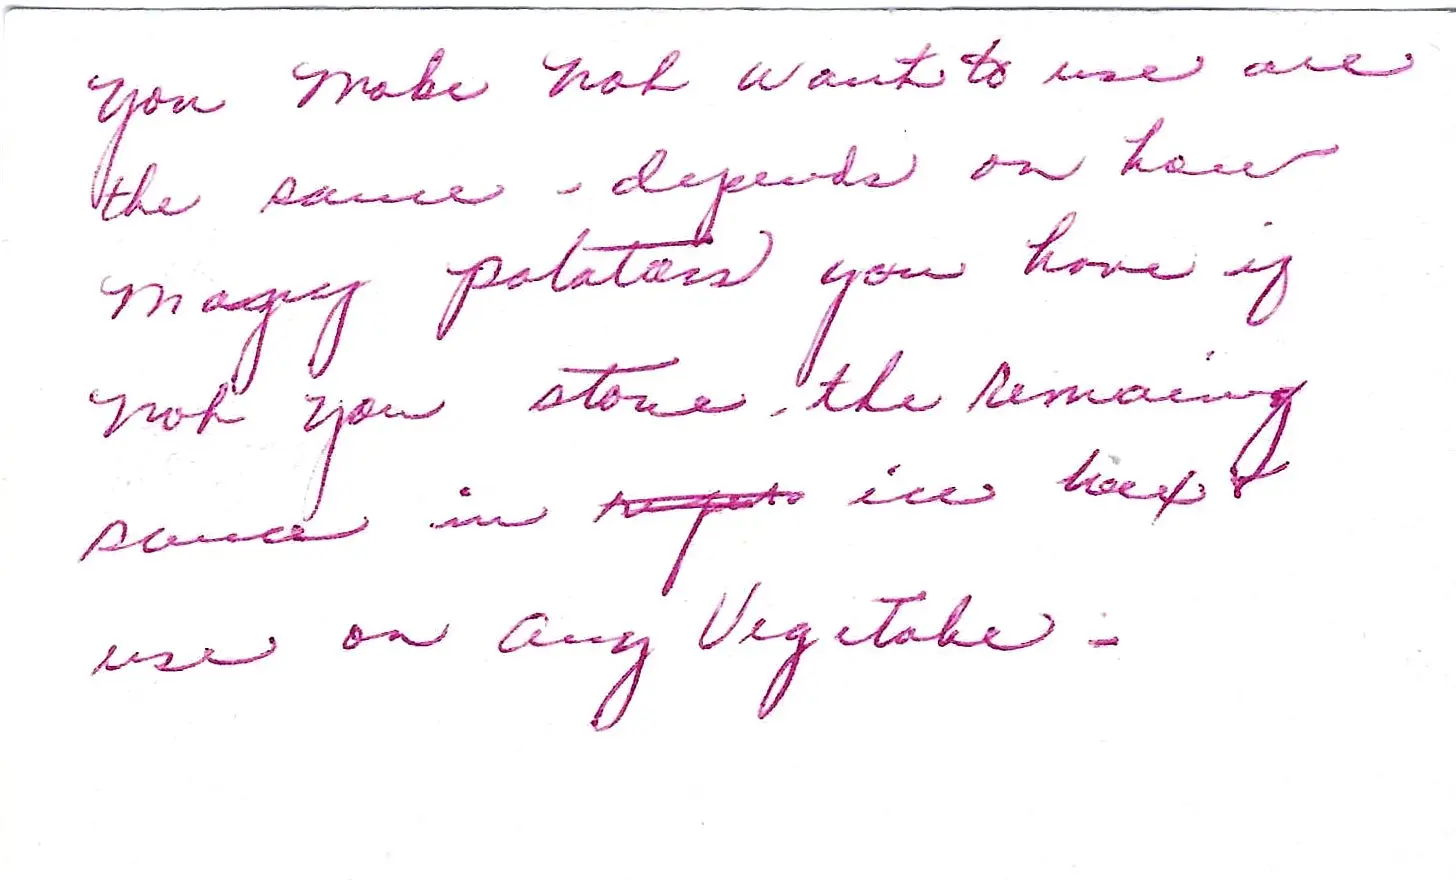 You make not want to use all
the sauce - depends on how
many potatoes you have if
not you store the remaing
sauce in ice box &
use on any Vegetable -